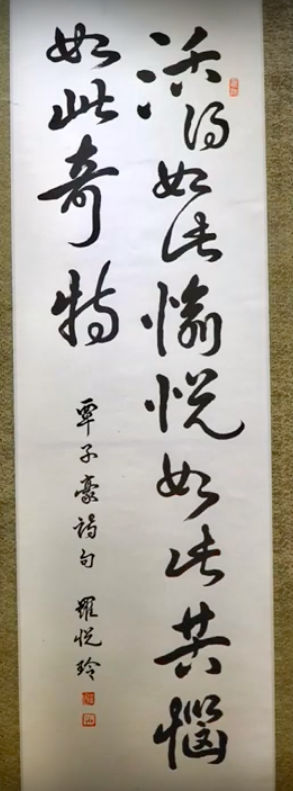 活得如此愉悦如此苦惱
如此奇特
覃子豪詩句 羅悦玲